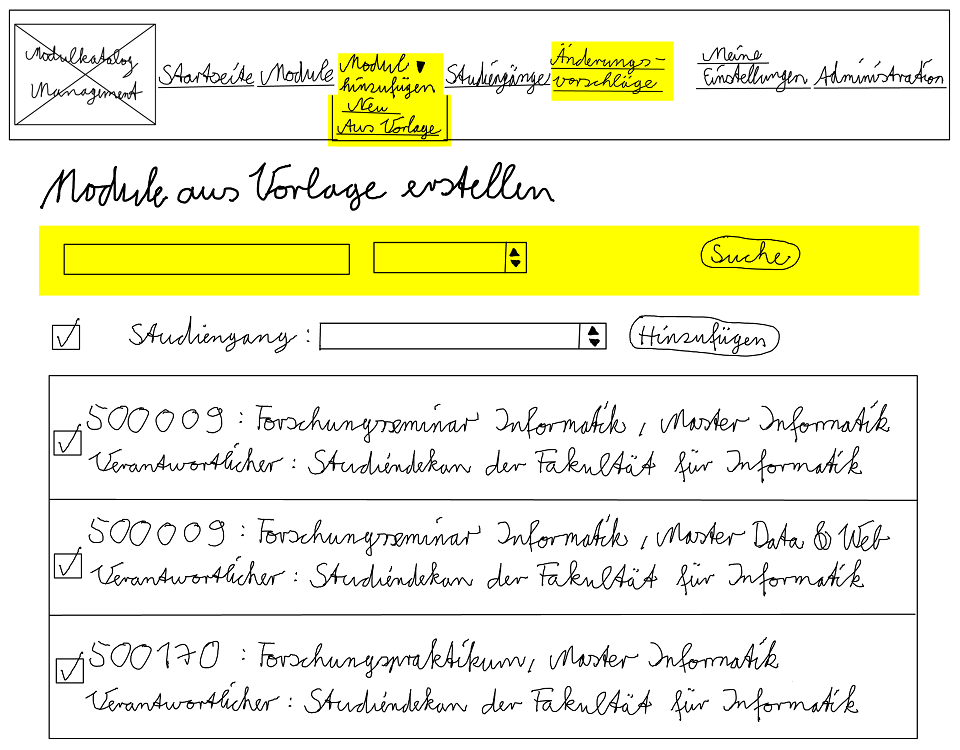 Modulkatalog
Management
Startseite Module Modul ▼ hinzufügen Studiengänge Änderungs-vorschläge Meine Einstellungen Administration
Neu
Aus Vorlage
Module aus Vorlage erstellen
Suche
Studiengang : Hinzufügen
500009 : Forschungsseminar Informatik, Master Informatik
Verantwortlicher : Studiendekan der Fakultät für Informatik
500009 : Forschungsseminar Informatik, Master Data & Web
Verantwortlicher : Studiendekan der Fakultät für Informatik
500170 : Forschungspraktikum, Master Informatik
Verantwortlicher : Studiendekan der Fakultät für Informatik